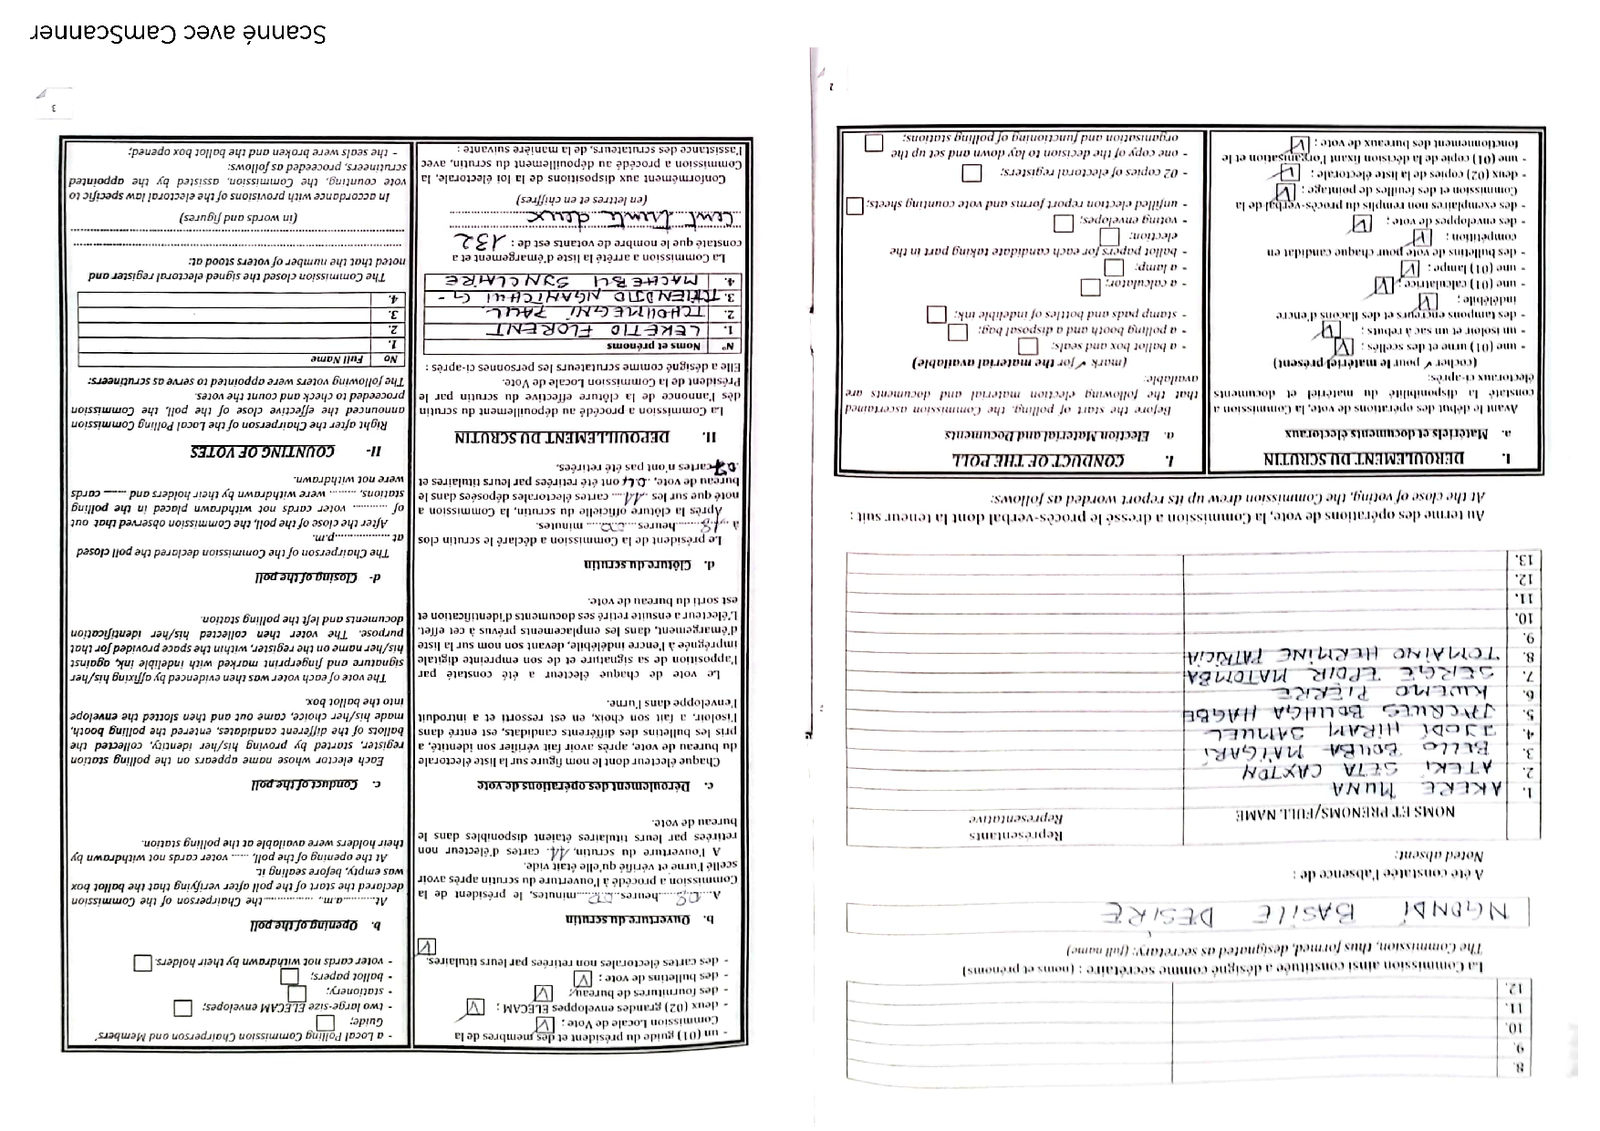 8.
9.
10.
11.
12.
La Commission ainsi constituée a désigné comme secrétaire : (noms et prénoms)
The Commission, thus formed, designated as secretary: (full name)
NGONDI BASILE DESIRE
A été constatée l'absence de :
Noted absent:
NOMS ET PRENOMS/FULL NAME
Représentants
Representative
1. AKERE MUNA
2. ATEKI SETA CAXTON
3. BELLO BOUBA MAIGARI
4. IJODI HIRAM SAMUEL
5. JACQUES BOUHGA HAGBE
6. KWEMO PIERRE
7. SERGE ESPOIR MATOMBA
8. TOMAINO HERMINE PATRICIA
9.
10.
11.
12.
13.
Au terme des opérations de vote, la Commission a dressé le procès-verbal dont la teneur suit :
At the close of voting, the Commission drew up its report worded as follows:
I. DEROULEMENT DU SCRUTIN
a. Matériels et documents électoraux
Avant le début des opérations de vote, la Commission a
constaté la disponibilité du matériel et documents
électoraux ci-après:
(cocher ✓ pour le matériel présent)
- une (01) urne et des scellés ;
- un isoloir et un sac à rebuts ;
- des tampons encreurs et des flacons d'encre
indélébile ;
- une (01) calculatrice ;
- une (01) lampe ;
- des bulletins de vote pour chaque candidat en
compétition ;
- des enveloppes de vote ;
- des exemplaires non remplis du procès-verbal de la
Commission et des feuilles de pointage ;
- deux (02) copies de la liste électorale ;
- une (01) copie de la décision fixant l'organisation et le
fonctionnement des bureaux de vote ;
I. CONDUCT OF THE POLL
a. Election Material and Documents
Before the start of polling, the Commission ascertained
that the following election material and documents are
available:
(mark ✓ for the material available)
- a ballot box and seals;
- a polling booth and a disposal bag;
- stamp pads and bottles of indelible ink;
- a calculator;
- a lamp;
- ballot papers for each candidate taking part in the
election;
- voting envelopes;
- unfilled election report forms and vote counting sheets;
- 02 copies of electoral registers;
- one copy of the decision to lay down and set up the
organisation and functioning of polling stations;
2
- un (01) guide du président et des membres de la
Commission Locale de Vote ;
- deux (02) grandes enveloppes ELECAM ;
- des fournitures de bureau;
- des bulletins de vote ;
- des cartes électorales non retirées par leurs titulaires.
b. Ouverture du scrutin
A...08...heures...00...minutes, le président de la
Commission a procédé à l'ouverture du scrutin après avoir
scellé l'urne et vérifié qu'elle était vide.
A l'ouverture du scrutin, 11. cartes d'électeur non
retirées par leurs titulaires étaient disponibles dans le
bureau de vote.
c. Déroulement des opérations de vote
Chaque électeur dont le nom figure sur la liste électorale
du bureau de vote, après avoir fait vérifier son identité, a
pris les bulletins des différents candidats, est entré dans
l'isoloir, a fait son choix, en est ressorti et a introduit
l'enveloppe dans l'urne.
Le vote de chaque électeur a été constaté par
l'apposition de sa signature et de son empreinte digitale
imprégnée à l'encre indélébile, devant son nom sur la liste
d'émargement, dans les emplacements prévus à cet effet.
L'électeur a ensuite retiré ses documents d'identification et
est sorti du bureau de vote.
d. Clôture du scrutin
Le président de la Commission a déclaré le scrutin clos
à ..18....heures...00.... minutes.
Après la clôture officielle du scrutin, la Commission a
noté que sur les ..11.... cartes électorales déposées dans le
bureau de vote, .04 ont été retirées par leurs titulaires et
.07cartes n'ont pas été retirées.
II. DEPOUILLEMENT DU SCRUTIN
La Commission a procédé au dépouillement du scrutin
dès l'annonce de la clôture effective du scrutin par le
Président de la Commission Locale de Vote.
Elle a désigné comme scrutateurs les personnes ci-après :
N° Noms et prénoms
1. LEKETIO FLORENT
2. TCHOUMEGNI PAUL
3. TCHIENDJIO NGANTCHUI G-
4. MACHEBU SYNCLAIRE
La Commission a arrêté la liste d'émargement et a
constaté que le nombre de votants est de : 132
Cent trente deux
(en lettres et en chiffres)
Conformément aux dispositions de la loi électorale, la
Commission a procédé au dépouillement du scrutin, avec
l'assistance des scrutateurs, de la manière suivante :
- a Local Polling Commission Chairperson and Members'
Guide;
- two large-size ELECAM envelopes;
- stationery;
- ballot papers;
- voter cards not withdrawn by their holders.
b. Opening of the poll
At...........a.m., ...............the Chairperson of the Commission
declared the start of the poll after verifying that the ballot box
was empty, before sealing it.
At the opening of the poll, ...... voter cards not withdrawn by
their holders were available at the polling station.
c. Conduct of the poll
Each elector whose name appears on the polling station
register, started by proving his/her identity, collected the
ballots of the different candidates, entered the polling booth,
made his/her choice, came out and then slotted the envelope
into the ballot box.
The vote of each voter was then evidenced by affixing his/her
signature and fingerprint marked with indelible ink, against
his/her name on the register, within the space provided for that
purpose. The voter then collected his/her identification
documents and left the polling station.
d- Closing of the poll
The Chairperson of the Commission declared the poll closed
at ..................p.m.
After the close of the poll, the Commission observed that out
of ........... voter cards not withdrawn placed in the polling
stations, ........ were withdrawn by their holders and ...... cards
were not withdrawn.
II- COUNTING OF VOTES
Right after the Chairperson of the Local Polling Commission
announced the effective close of the poll, the Commission
proceeded to check and count the votes.
The following voters were appointed to serve as scrutineers:
No Full Name
1.
2.
3.
4.
The Commission closed the signed electoral register and
noted that the number of voters stood at:
(in words and figures)
In accordance with provisions of the electoral law specific to
vote counting, the Commission, assisted by the appointed
scrutineers, proceeded as follows:
- the seals were broken and the ballot box opened;
3
Scanné avec CamScanner